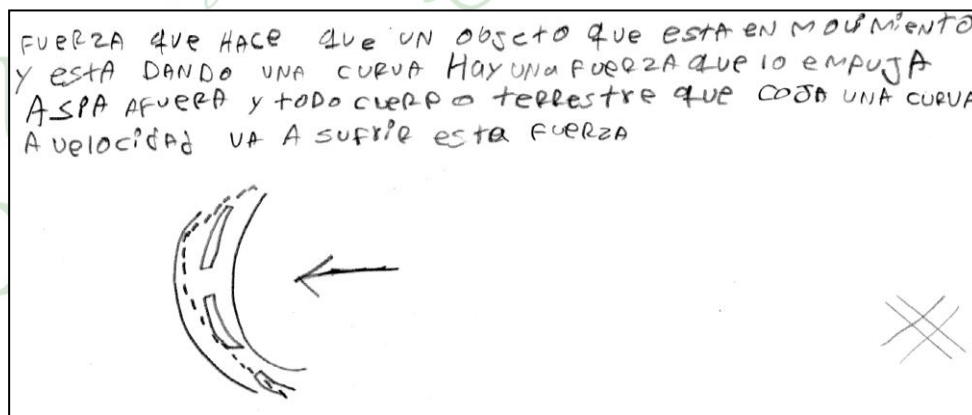 FUERZA QUE HACE QUE UN OBJETO QUE ESTA EN MOVIMIENTO
Y ESTA DANDO UNA CURVA HAY UNA FUERZA QUE LO EMPUJA
ASPA AFUERA Y TODO CUERPO TERRESTRE QUE COJA UNA CURVA
A VELOCIDAD VA A SUFRIR ESTA FUERZA